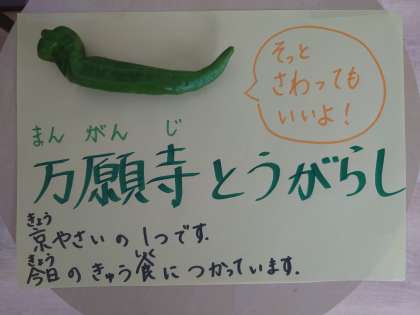 そっと
さわっても
いいよ！
まん がん じ
万願寺とうがらし
きょう
京やさいの1つです.
きょう しょく
今日のきゅう食につかっています.